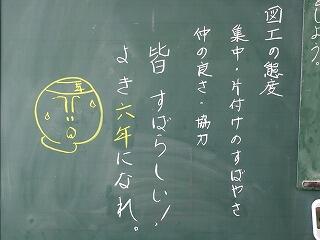 しよう。
図工の態度
集中・片付けのすばやさ
仲の良さ・協力
皆すばらしい！
よき六年になれ。
年